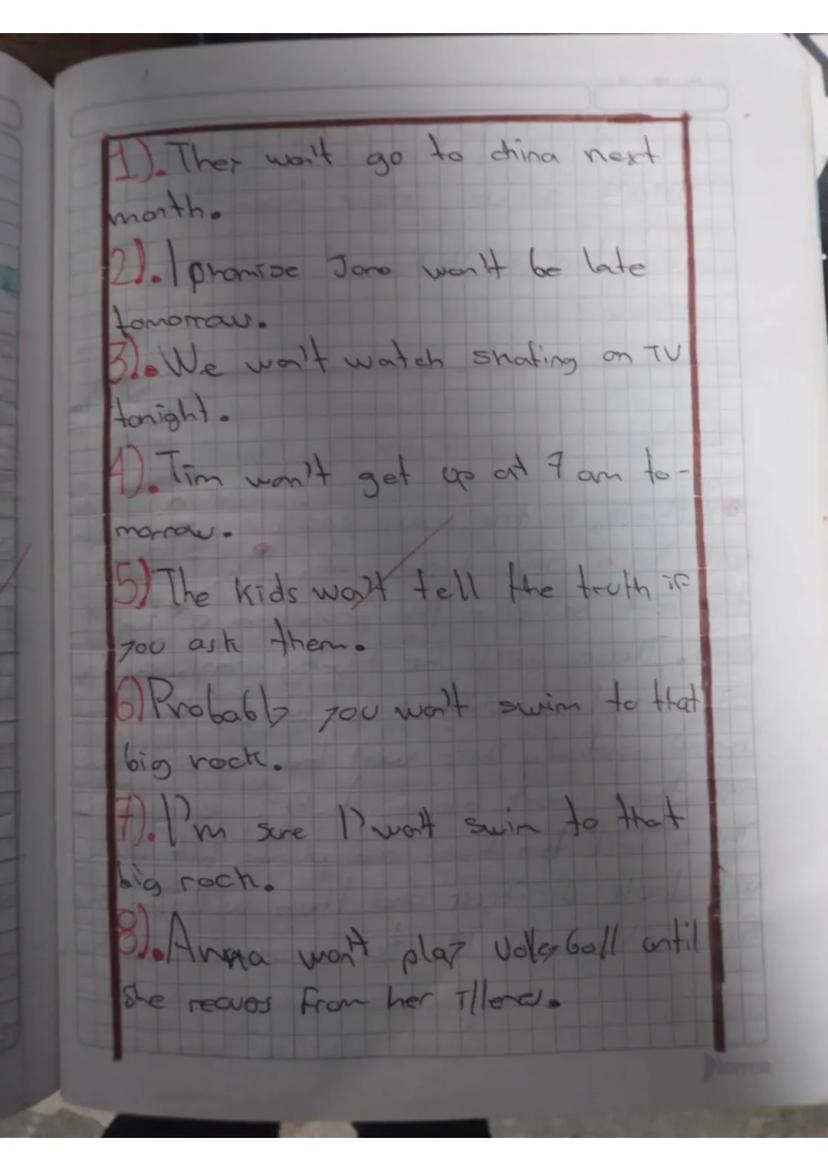 1). They won't go to china next
month.
2). I promise Jane won't be late
tomorrow.
3). We won't watch skating on TV
tonight.
4). Tim won't get up at 7 am to-
morrow.
5) The kids won't tell the truth if
you ask them.
6) Probably you won't swim to that
big rock.
7). I'm sure I' won't swin to that
big rock.
8). Anna won't play until
she from her
Norma